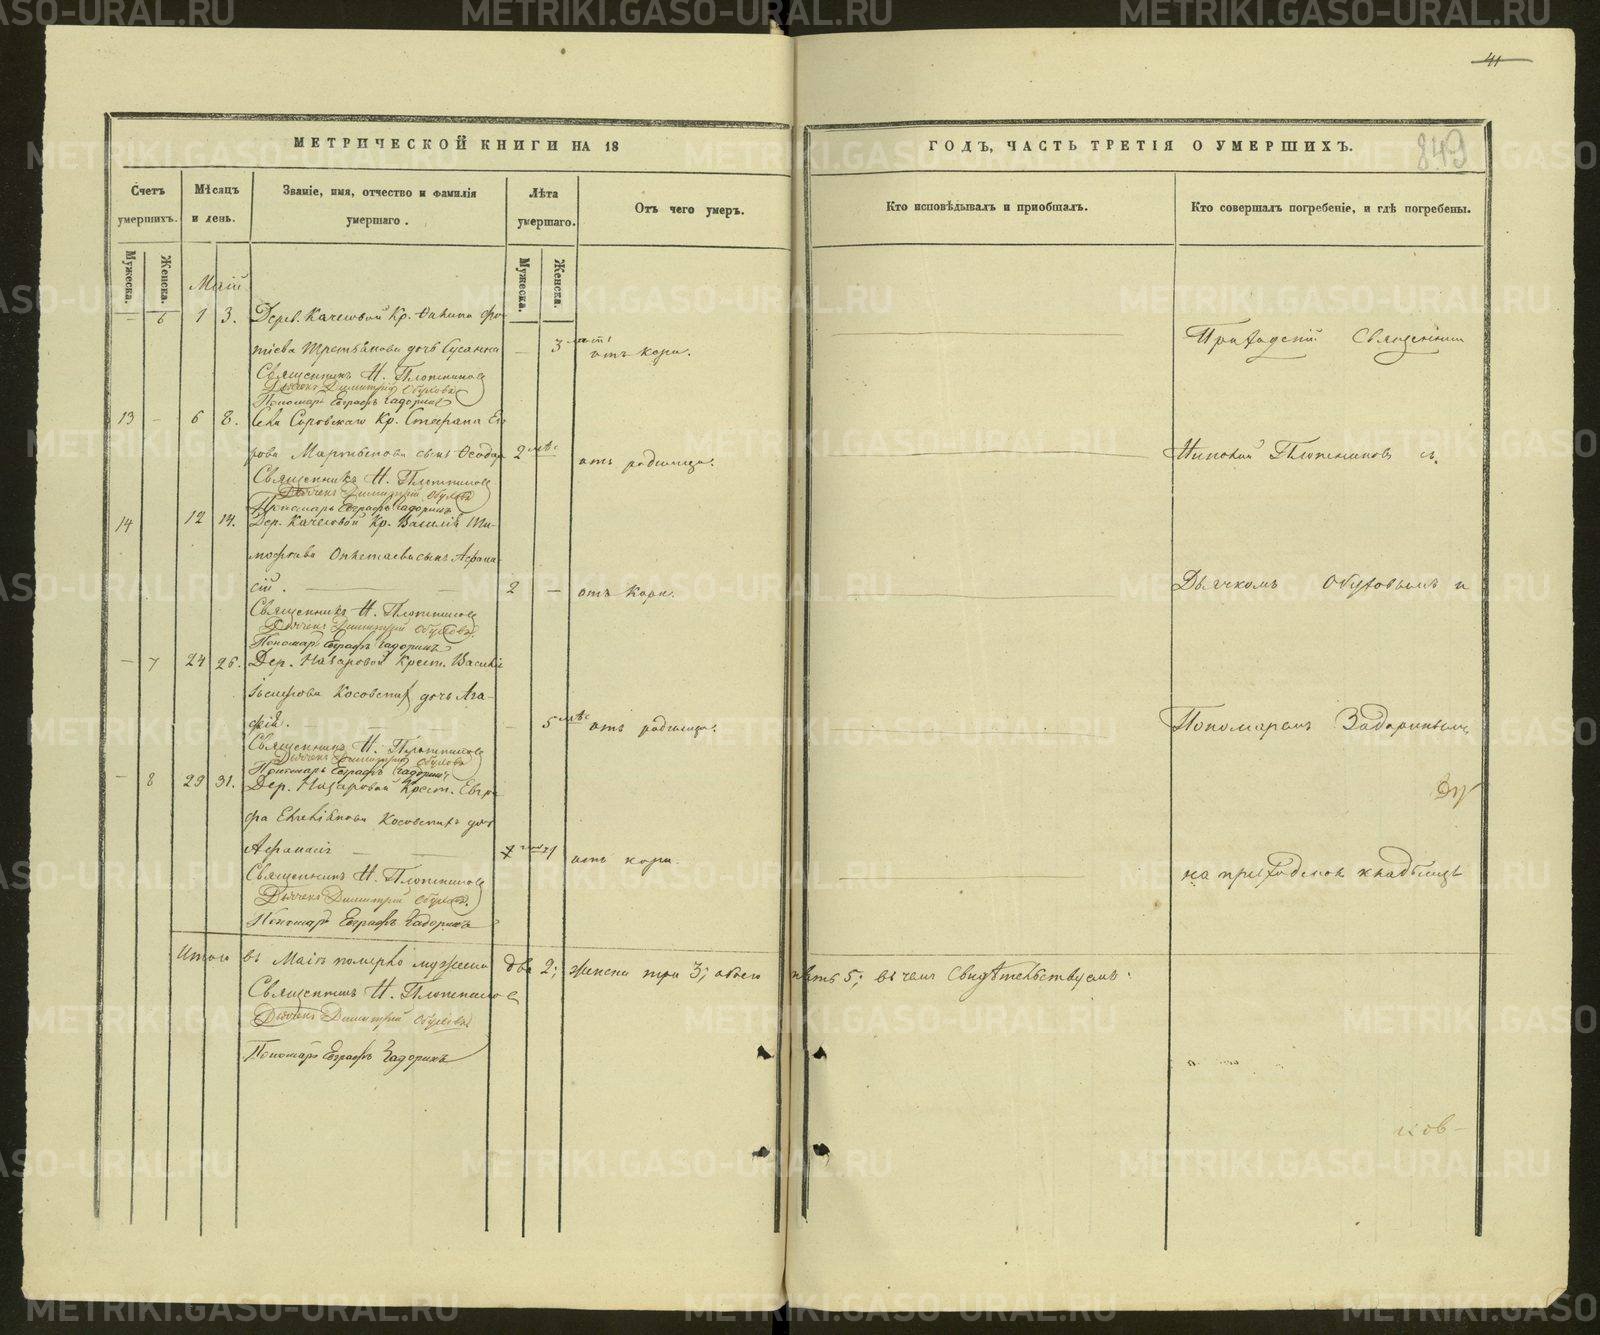 41
849
МЕТРИЧЕСКОЙ КНИГИ НА 18
ГОДЪ, ЧАСТЬ ТРЕТІЯ О УМЕРШИХЪ.
Счетъ умершихъ.
Мѣсяцъ и день.
Званіе, имя, отчество и фамилія умершаго.
Лѣта умершаго.
Отъ чего умеръ.
Кто исповѣдывалъ и пріобщалъ.
Кто совершалъ погребеніе, и гдѣ погребены.
Мужеска.
Женска.
Мужеска.
Женска.
Маій
– 6 1 3. Дерев. Качесовой Кр.
дочь Сусанна – 3 отъ кори.
Приходскій Священникъ
Священникъ Н. Плотниковъ
Дьячекъ Димитрій Обуховъ
Пономарь Евграфъ Задоринъ
13 – 6 8. Села Суровскаго Кр. Стефана Его
рова Мартынова сынъ Ѳеодоръ 2 мѣс отъ родимца.
Николай Плотниковъ съ
Священникъ Н. Плотниковъ
Дьячекъ Димитрій Обуховъ
Пономарь Евграфъ Задоринъ
14 12 14. Дер. Качесовой Кр. Василія Ти-
сынъ Афана-
сій. 2 – отъ кори.
Дьячкомъ Обуховымъ и
Священникъ Н. Плотниковъ
Дьячекъ Димитрій Обуховъ
Пономарь Евграфъ Задоринъ
– 7 24 26. Дер. Назаровой Крест. Василія
Косовскихъ дочь Ага-
фія. – 5 мѣс отъ родимца.
Пономаремъ Задоринымъ
Священникъ Н. Плотниковъ
Дьячекъ Димитрій Обуховъ
Пономарь Евграфъ Задоринъ
– 8 29 31. Дер. Назаровой Крест. Евгра
фа Косовскихъ дочь
отъ кори.
на приходскомъ кладбищѣ
Священникъ Н. Плотниковъ
Дьячекъ Димитрій Обуховъ
Пономарь Евграфъ Задоринъ
Итого въ Маіѣ померло мужеска два 2; женска три 3; обоего пять 5; въ чемъ свидѣтельствуемъ.
Священникъ Н. Плотниковъ
Дьячекъ Димитрій Обуховъ
Пономарь Евграфъ Задоринъ
METRIKI.GASO-URAL.RU